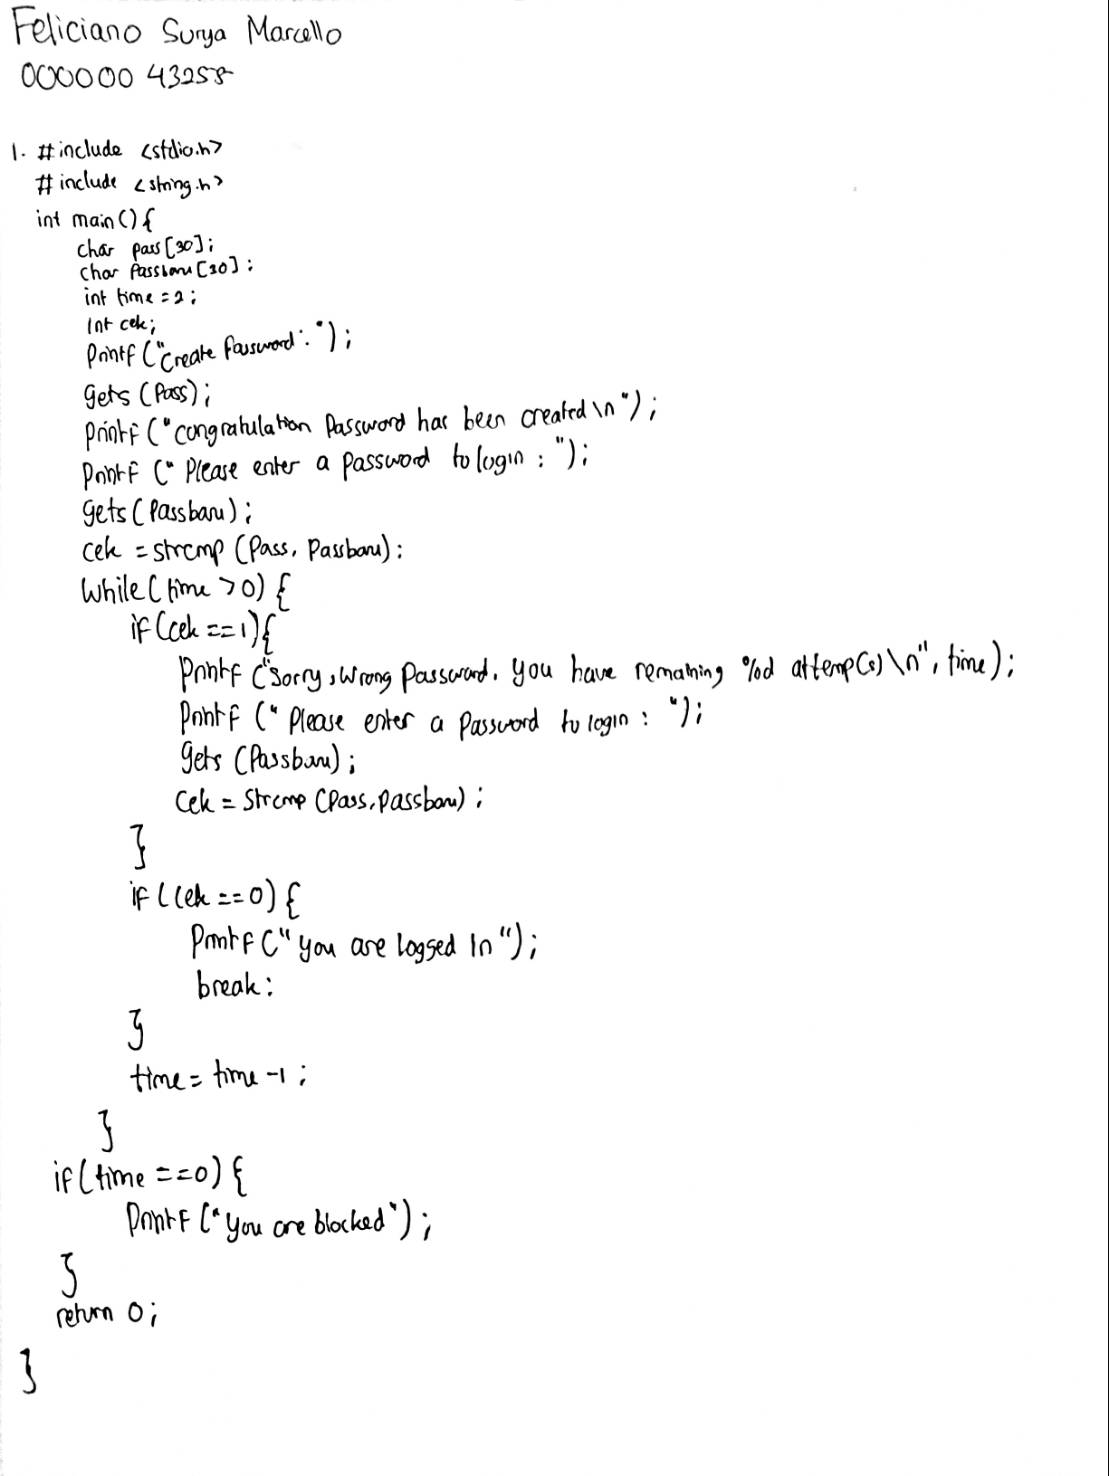 Feliciano Surya Marcello
00000043258
1. #include <stdio.h>
#include <string.h>
int main(){
char pass[30];
char Passbaru[30];
int time=2;
int cek;
Printf("Create Password: ");
gets(Pass);
printf("congratulation Password has been created\n");
Printf("Please enter a password to login : ");
gets(Passbaru);
cek = strcmp(Pass, Passbaru);
While(time >0){
if(cek ==1){
Printf("Sorry, Wrong Password. You have remaining %d attemp(s)\n", time);
Printf("Please enter a Password to login : ");
gets(Passbaru);
Cek = Strcmp(Pass, passbaru);
}
if(cek ==0){
Printf("you are logged in");
break;
}
time= time-1;
}
if(time ==0){
Printf("you are blocked");
}
return 0;
}